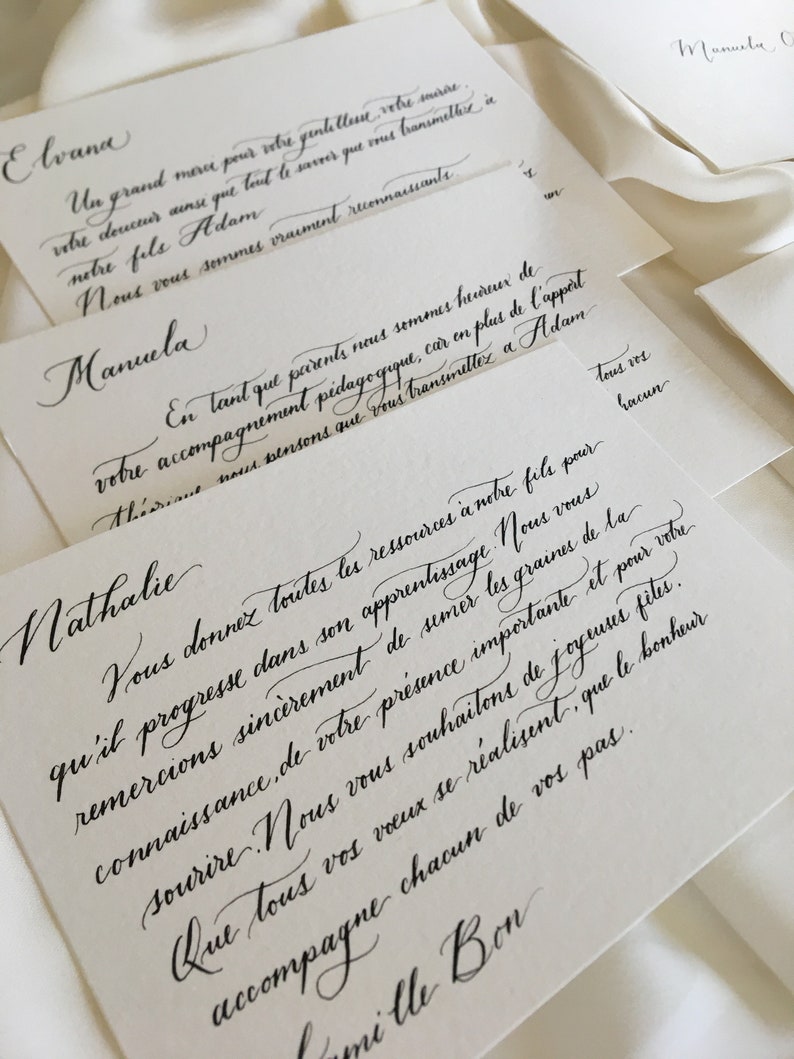 Manuela
Elvana
Un grand merci pour votre gentillesse, votre sourire,
votre douceur ainsi que tout le savoir que vous transmettez à
notre fils Adam
Nous vous sommes vraiment reconnaissants.
Manuela
En tant que parents nous sommes heureux de
votre accompagnement pédagogique, car en plus de l'apport
théorique, nous pensons que vous transmettez a Adam
tous vos
chacun
Nathalie
Vous donnez toutes les ressources à notre fils pour
qu'il progresse dans son apprentissage. Nous vous
remercions sincèrement de semer les graines de la
connaissance, de votre présence importante et pour votre
sourire. Nous vous souhaitons de joyeuses fêtes.
Que tous vos vœux se réalisent, que le bonheur
accompagne chacun de vos pas.
Famille Bon